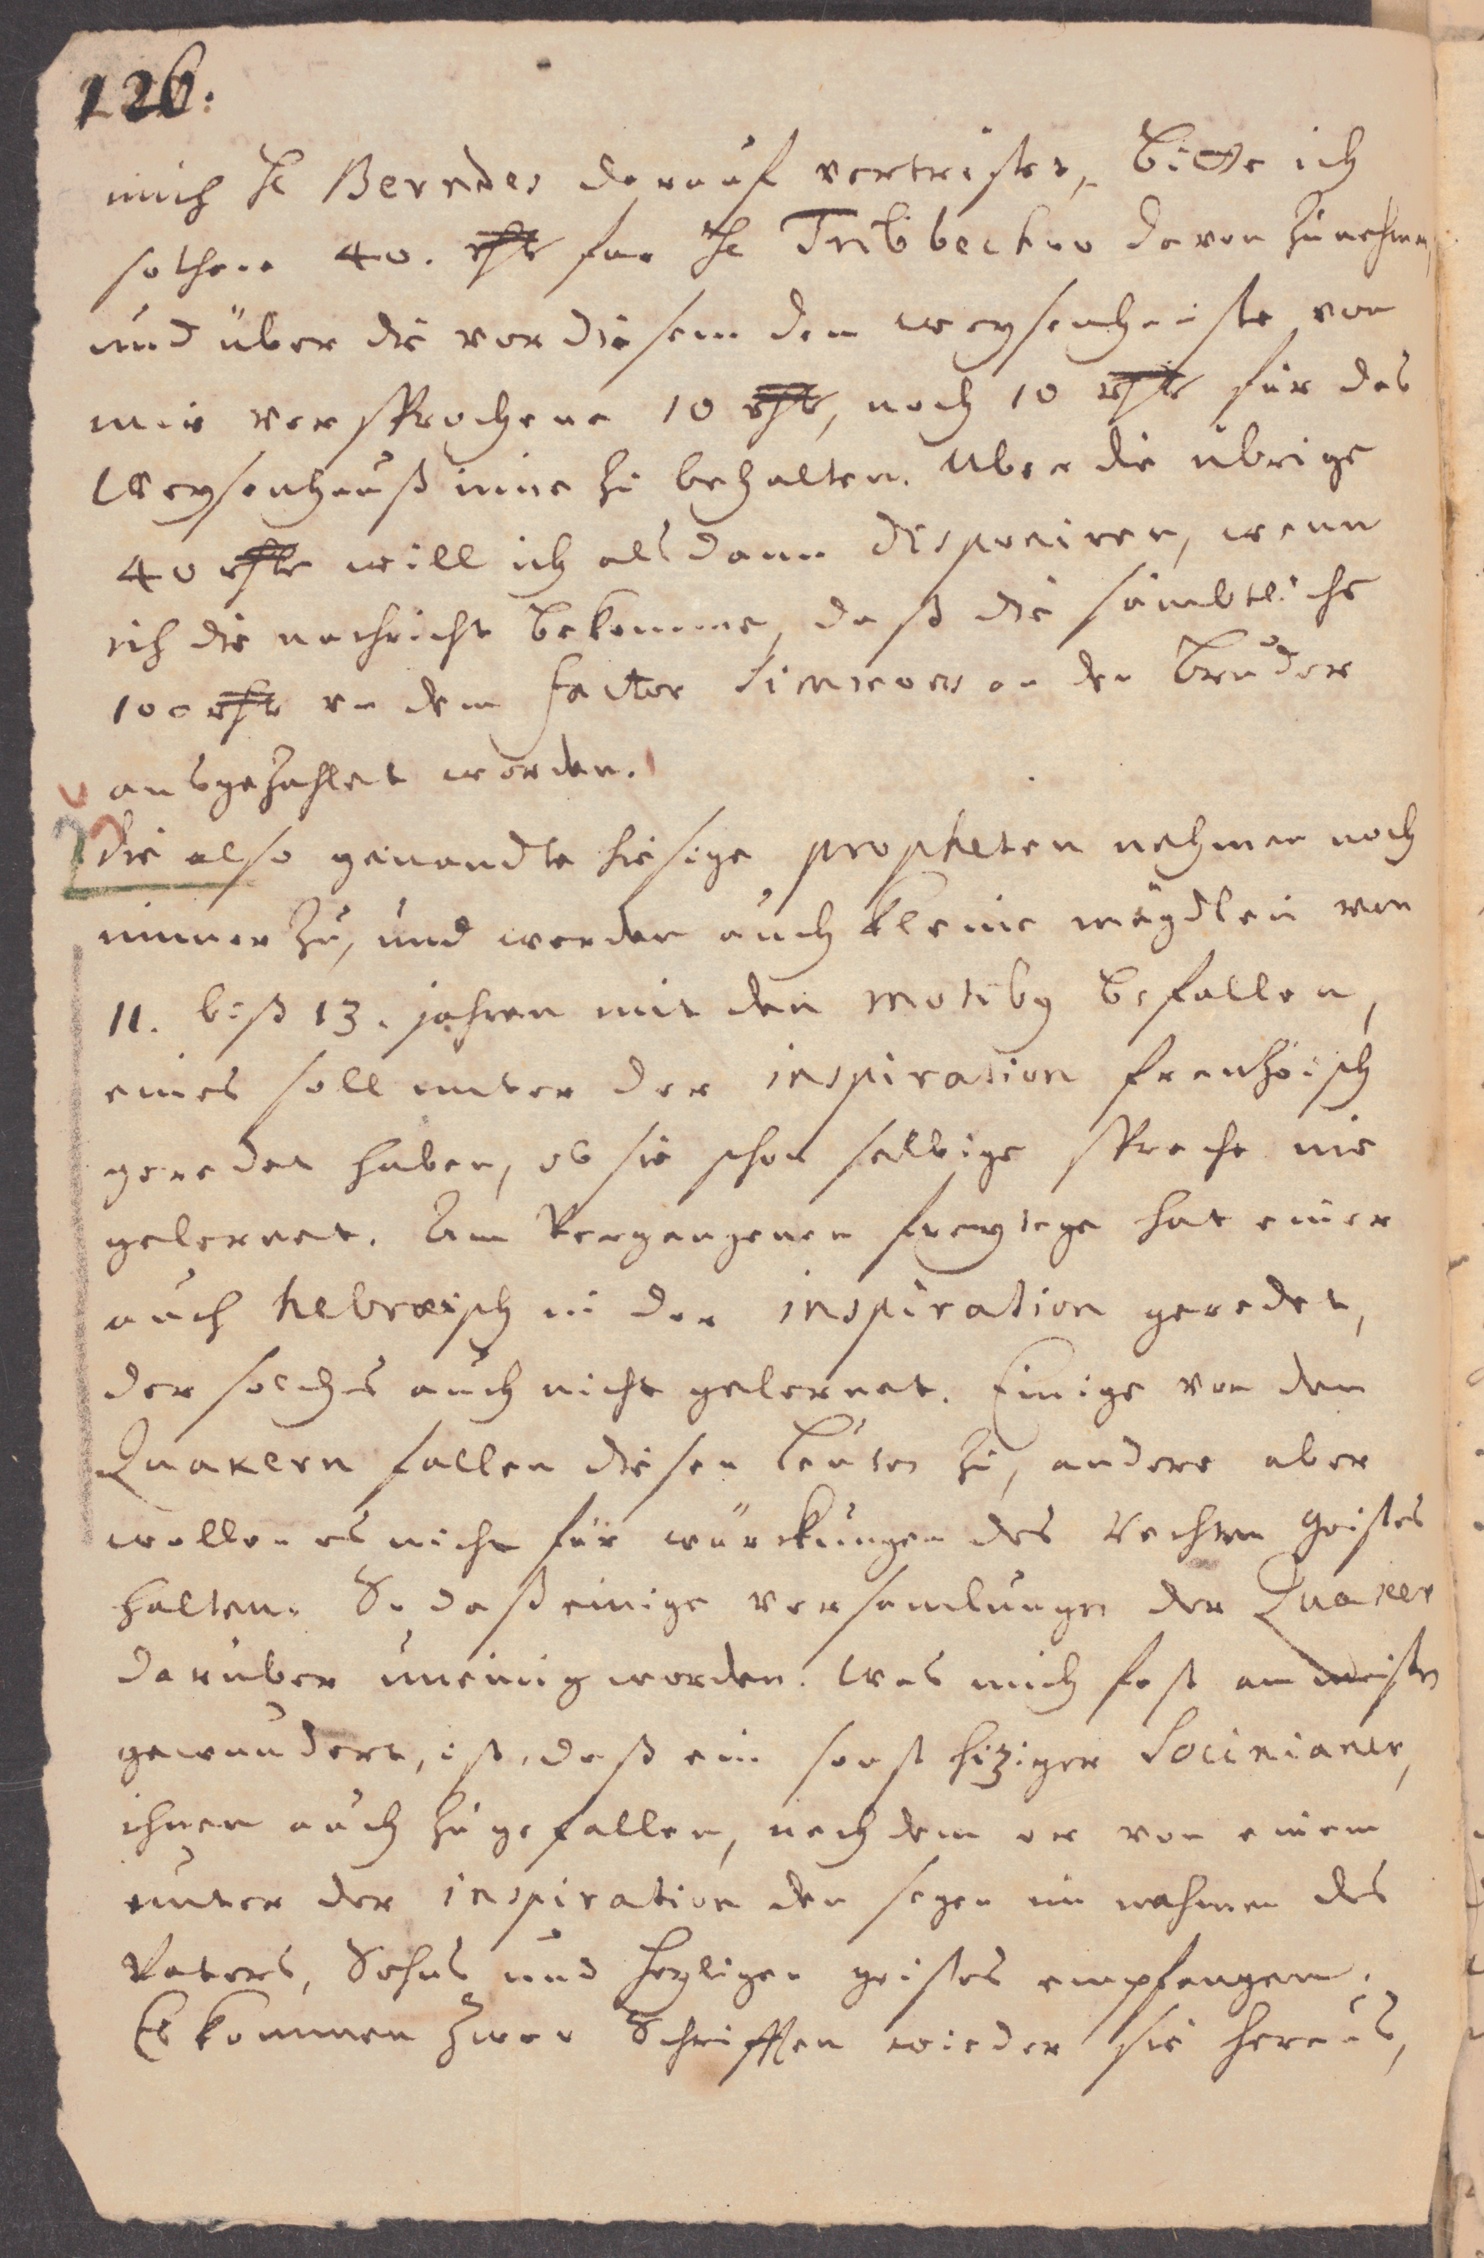 126:
mich H Berndes darauf vertröstet, bitte ich
sothane 40. rthl für H Tribbechov davon zu nehmen,
und über die vor diesem dem weysenhause von
mir versprochene 10 rthl, noch 10 rthl für das
Weysenhauß inne zu behalten. Uber die übrige
40 rthl will ich alsdann disponiren, wenn
ich die nachricht bekomme, daß die sämbtliche
100 rthl von dem Factor an den Bruder
ausgezahlet worden.
Die also genandte hiesige propheten nehmen noch
immer zu, und werden auch kleine mägdlein von
11. biß 13. jahren mit den motibg befallen,
eines soll unter der inspiration franzöisch
geredet haben, ob sie schon selbige sprache nie
gelernet. Am Vergangenen freytage hat einer
auch hebræisch in der inspiration geredet,
der solches auch nicht gelernet. Einige von den
Quakern fallen diesen leuten zu, andere aber
wollen es nicht für würckungen des rechten Geistes
halten. So daß einige versamlungen der Quaker
darüber uneinig worden. Was mich fast am meisten
gewundert, ist, daß ein sonst hitziger Socinianer,
ihnen auch zugefallen, nachdem er von einem
unter der inspiration den segen im nahmen des
Vaters, Sohns und heyligen geistes empfangen.
Es kommen zwar Schrifften wieder sie heraus,